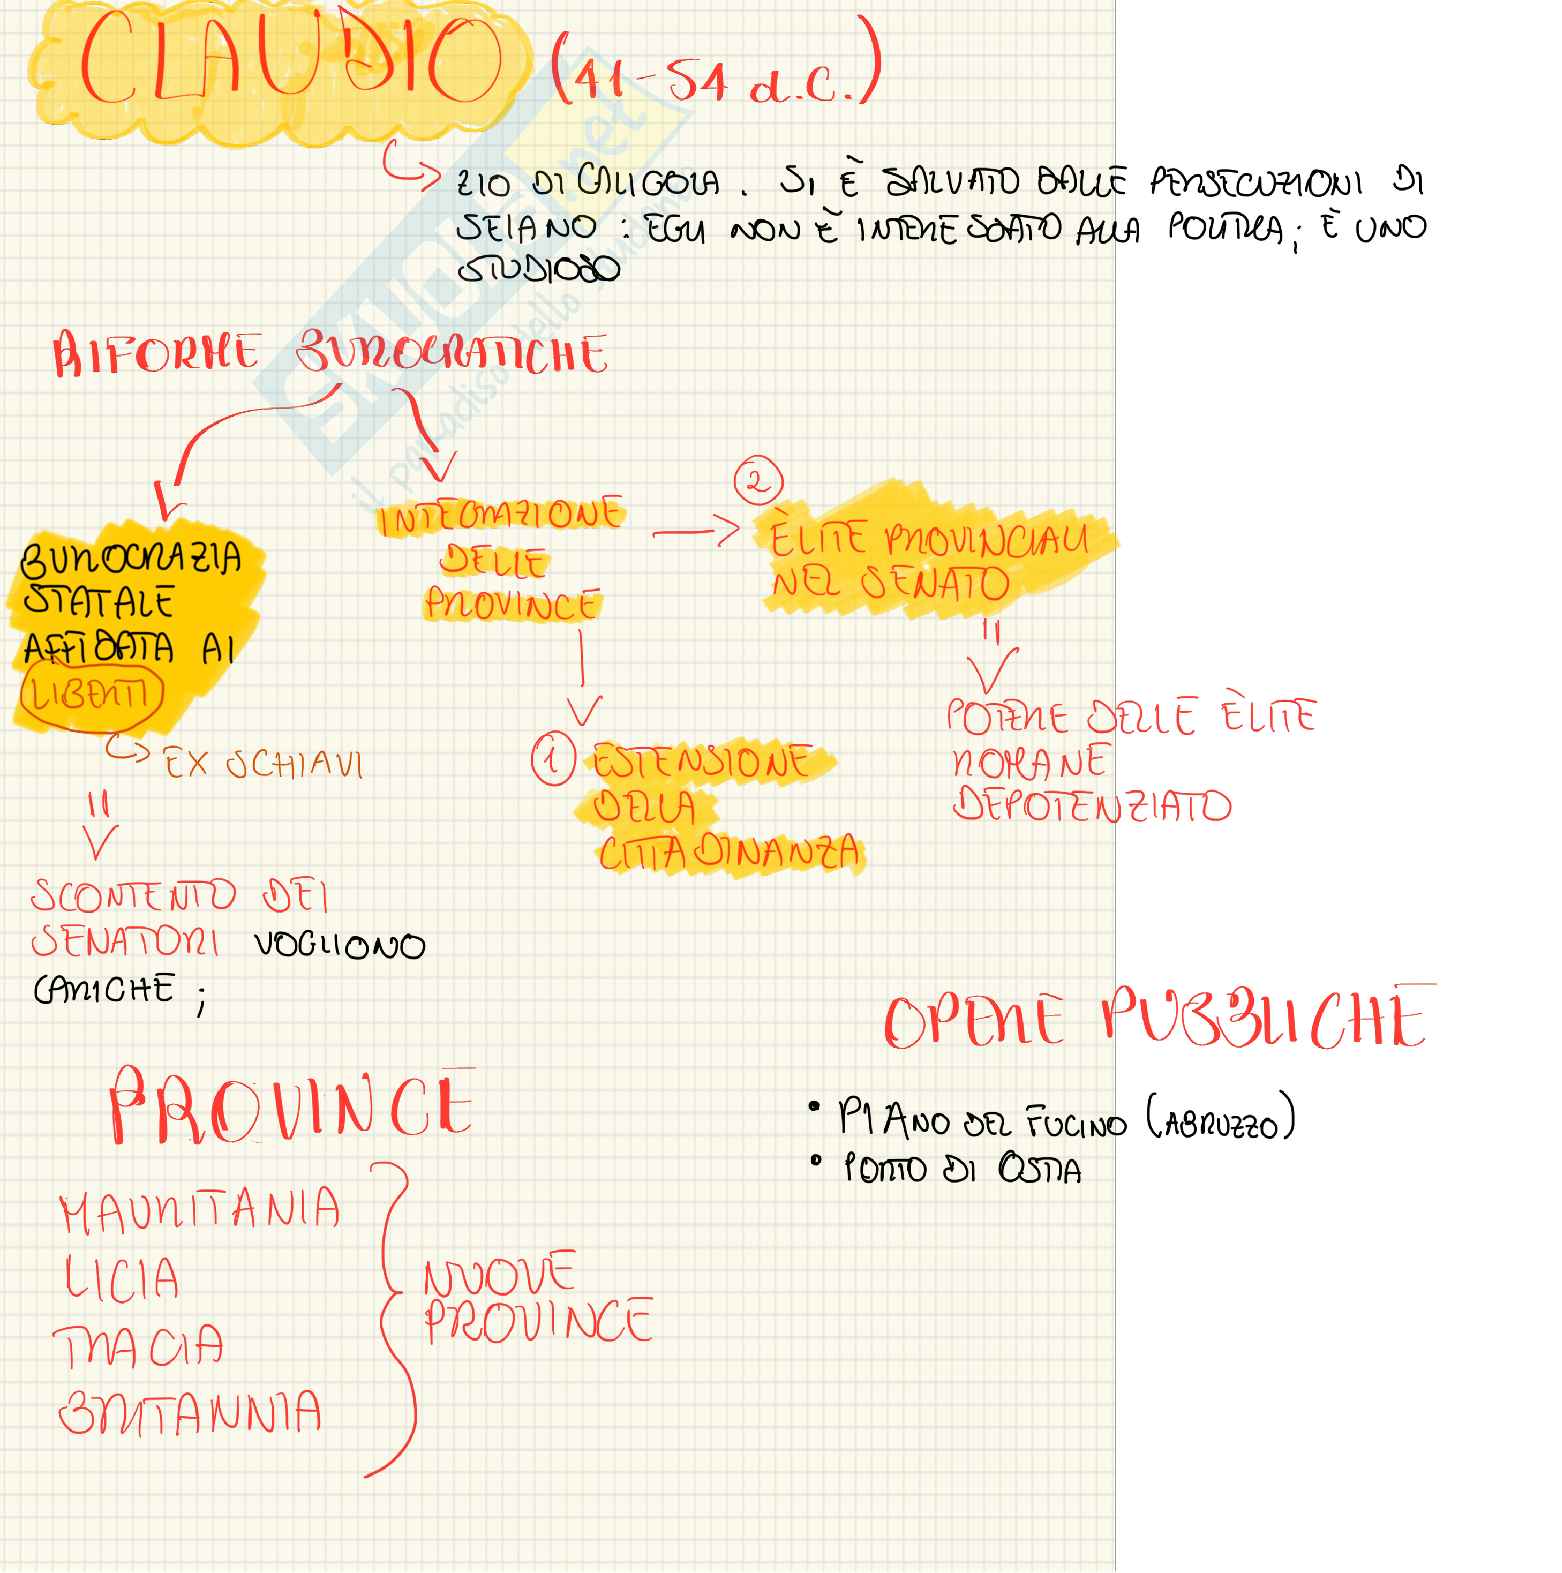 CLAUDIO (41-54 d.C.)
ZIO DI CALIGOLA. SI È SALVATO DALLE PERSECUZIONI DI
SEIANO: EGLI NON È INTERESSATO ALLA POLITICA; È UNO
STUDIOSO
RIFORME BUROCRATICHE
BUROCRAZIA
STATALE
AFFIDATA AI
LIBERTI
EX SCHIAVI
SCONTENTO DEI
SENATORI VOGLIONO
CARICHE;
INTEGRAZIONE
DELLE
PROVINCE
1 ESTENSIONE
DELLA
CITTADINANZA
2
ÈLITE PROVINCIALI
NEL SENATO
POTERE DELLE ÈLITE
ROMANE
DEPOTENZIATO
PROVINCE
MAURITANIA
LICIA
TRACIA
BRITANNIA
NUOVE
PROVINCE
OPERE PUBBLICHE
• PIANO DEL FUCINO (ABRUZZO)
• PORTO DI OSTIA
SKUOLA.net
il paradiso dello studente